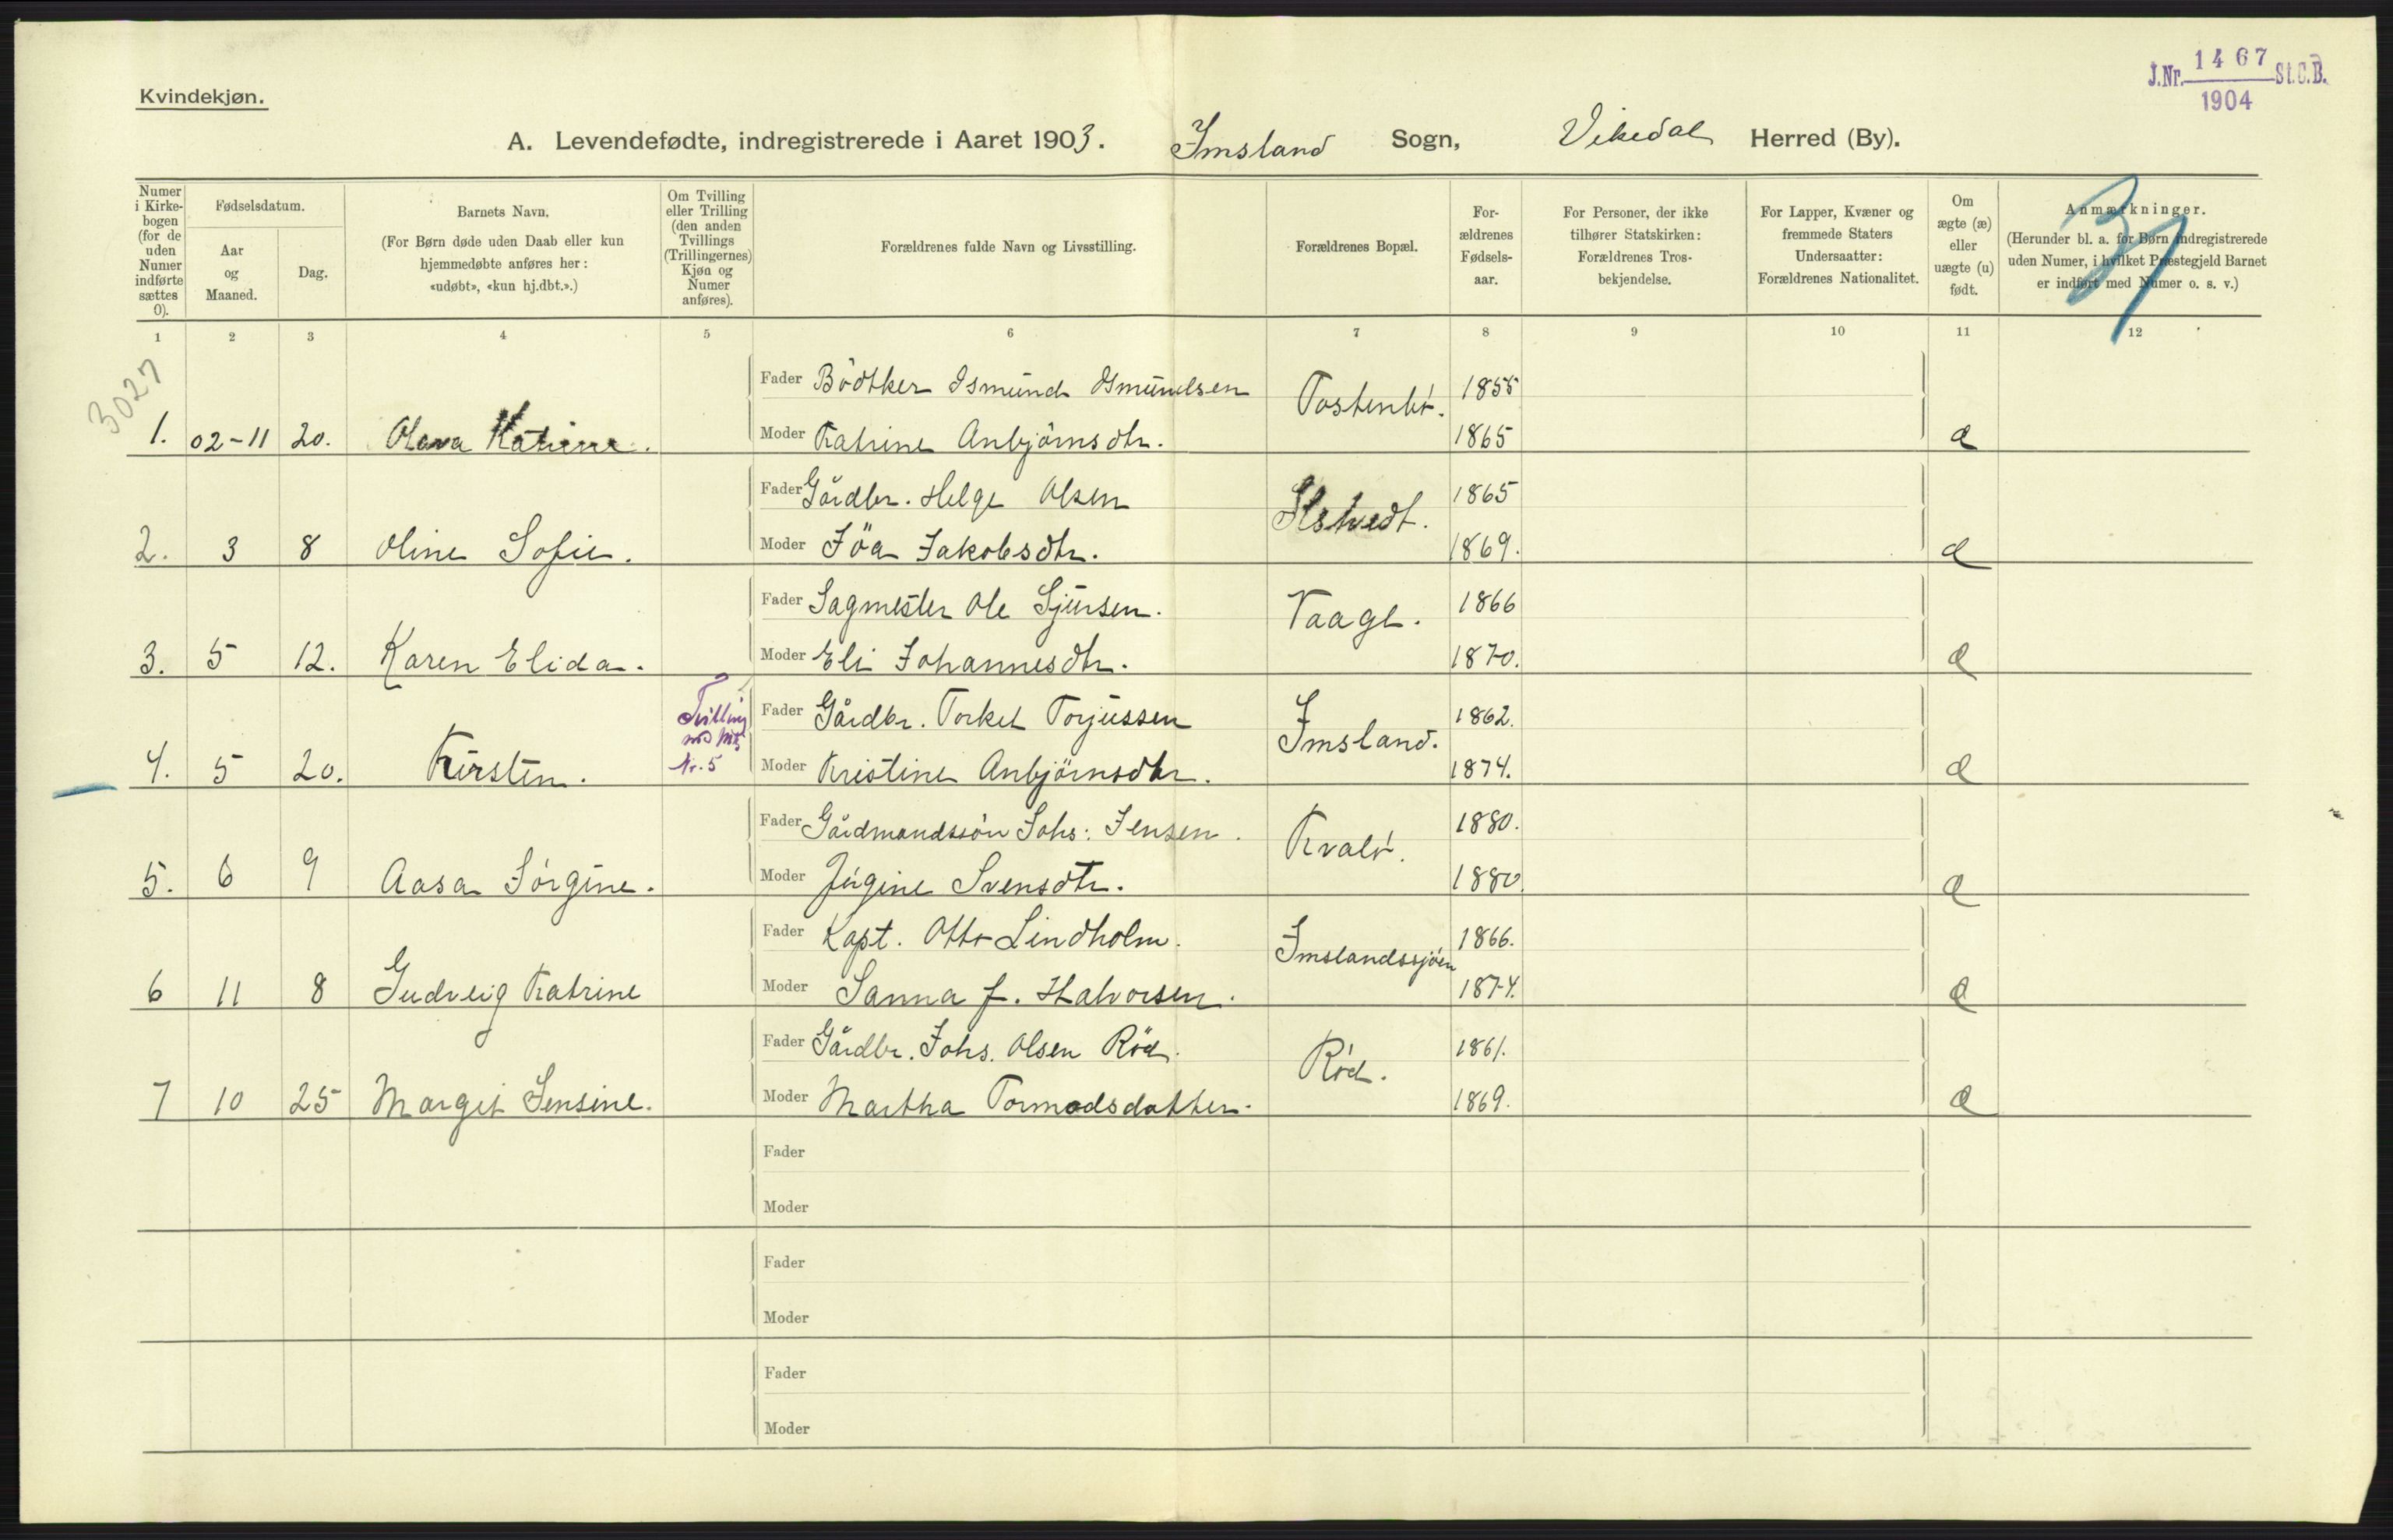 J.Nr. 1467 St.C.B.
1904
Kvindekjøn.
A. Levendefødte, indregistrerede i Aaret 1903. Imsland Sogn, Vikedal Herred (By).
Numer i Kirkebogen (for de uden Numer indførte sættes 0).
Fødselsdatum.
Aar og Maaned.
Dag.
Barnets Navn.
(For Børn døde uden Daab eller kun hjemmedøbte anføres her: «udøbt», «kun hj.dbt.».)
Om Tvilling eller Trilling (den anden Tvillings (Trillingernes) Kjøn og Numer anføres).
Forældrenes fulde Navn og Livsstilling.
Forældrenes Bopæl.
Forældrenes Fødselsaar.
For Personer, der ikke tilhører Statskirken: Forældrenes Trosbekjendelse.
For Lapper, Kvæner og fremmede Staters Undersaatter: Forældrenes Nationalitet.
Om ægte (æ) eller uægte (u) født.
Anmærkninger.
(Herunder bl. a. for Børn indregistrerede uden Numer, i hvilket Præstegjeld Barnet er indført med Numer o. s. v.)
1 2 3 4 5 6 7 8 9 10 11 12
3027
Fader Bödtker Ismund Osmundsen Tostenbö. 1855
1. 02-11 20. Olava Katrine. Moder Katrine Anbjörnsdtr. 1865 æ
Fader Gårdbr. Helge Olsen 1865
2. 3 8 Oline Sofie. Moder Jöa Jakobsdtr. 1869. æ
Fader Sagmester Ole Sjursen. Vaage. 1866
3. 5 12. Karen Elida. Moder Eli Johannesdtr. 1870. æ
Tvilling med Mk Nr. 5 Fader Gårdbr. Torkel Torjussen Imsland. 1862.
4. 5 20. Kirsten. Moder Kristine Anbjörnsdtr. 1874. æ
Fader Gårdmandssön Johs: Jensen. Kvalö. 1880.
5. 6 9 Aasa Jörgine. Moder Jörgine Svensdtr. 1880. æ
Fader Kapt. Otto Lindholm. Imslandssjöen 1866.
6 11 8 Gudveig Katrine Moder Sanna f. Halvorsen. 1874. æ
Fader Gårdbr. Johs. Olsen Röd. Röd. 1861.
7 10 25 Margit Jensine. Moder Martha Tormodsdatter. 1869. æ
Fader
Moder
Fader
Moder
Fader
Moder